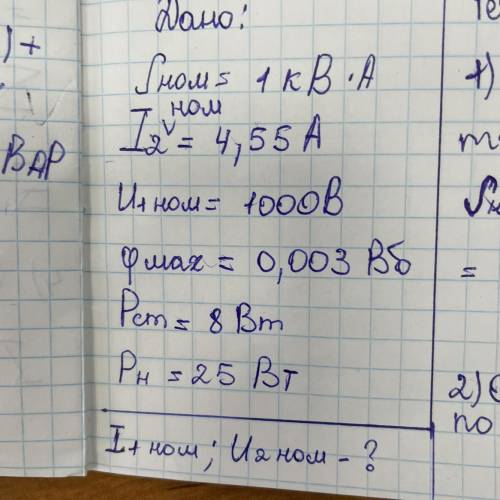 Дано:
Sном = 1 кВ·А
I₂ ном = 4,55 А
U₁ ном = 1000В
φmax = 0,003 Вб
Рст = 8 Вт
Рн = 25 Вт
I₁ ном; U₂ ном - ?
) +
ВАР
1)
Sн
=
2)
по